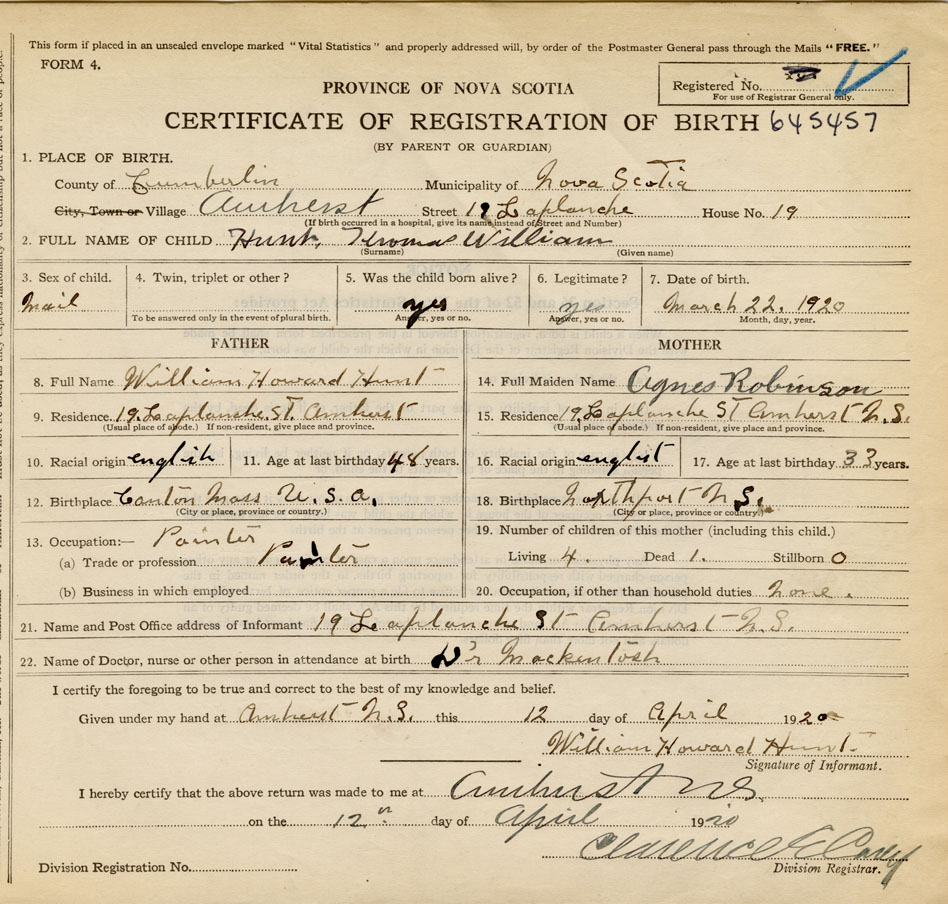 This form if placed in an unsealed envelope marked "Vital Statistics" and properly addressed will, by order of the Postmaster General pass through the Mails "FREE."
FORM 4.
Registered No.
For use of Registrar General only.
PROVINCE OF NOVA SCOTIA
CERTIFICATE OF REGISTRATION OF BIRTH 645457
(BY PARENT OR GUARDIAN)
1. PLACE OF BIRTH.
County of Cumberlin Municipality of Nova Scotia
City, Town or Village Amherst Street 19 Laplanche House No. 19
(If birth occurred in a hospital, give its name instead of Street and Number)
2. FULL NAME OF CHILD Hunt, Thomas William
(Surname) (Given name)
3. Sex of child. 4. Twin, triplet or other? 5. Was the child born alive? 6. Legitimate? 7. Date of birth.
Mail yes yes March 22, 1920
To be answered only in the event of plural birth. Answer, yes or no. Answer, yes or no. Month, day, year.
FATHER MOTHER
8. Full Name William Howard Hunt 14. Full Maiden Name Agnes Robinson
9. Residence. 19 Laplanche St. Amherst 15. Residence 19 Laplanche St Amherst N.S.
(Usual place of abode.) If non-resident, give place and province. (Usual place of abode.) If non-resident, give place and province.
10. Racial origin english 11. Age at last birthday 48 years. 16. Racial origin english 17. Age at last birthday 33 years.
12. Birthplace Canton Mass U.S.A. 18. Birthplace Northport N.S.
(City or place, province or country.) (City or place, province or country.)
13. Occupation:— Painter 19. Number of children of this mother (including this child.)
(a) Trade or profession Painter Living 4. Dead 1. Stillborn 0
(b) Business in which employed 20. Occupation, if other than household duties none.
21. Name and Post Office address of Informant 19 Laplanche St Amherst N.S.
22. Name of Doctor, nurse or other person in attendance at birth Dr Mackintosh
I certify the foregoing to be true and correct to the best of my knowledge and belief.
Given under my hand at Amherst N.S. this 12 day of April 1920
William Howard Hunt
Signature of Informant.
I hereby certify that the above return was made to me at Amherst NS.
on the 12 day of April 1920
Clarence
Division Registration No. Division Registrar.